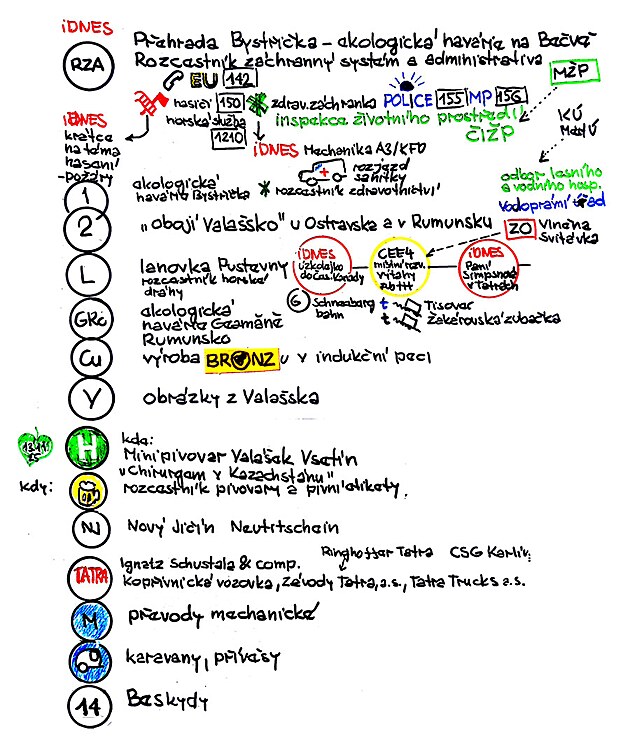 iDNES
RZA
Přehrada Bystřička - ekologická havárie na Bečvě
Rozcestník záchranný systém a administrativa
EU 112
MŽP
hasiči 150
zdrav. záchranka
POLICE 155 MP 156
inspekce životního prostředí
ČIŽP
horská služba
1210
iDNES
krátce
na téma
hašení
- požáry
KÚ
Měst Ú
iDNES Mechanika A3/KFD
rozjezd
sanitky
odbor lesního
a vodního hosp.
vodoprávní úřad
1
ekologická
havárie Bystřička
rozcestník zdravotnictví
2
"obojí Valašsko" u Ostravska a v Rumunsku
ZO Vlněna
Svitávka
L
lanovka Pustevny
rozcestník horské
dráhy
iDNES
úzkokolejko
do Čas. Kanady
CEE4
místní rozv.
výtahy
iDNES
Paní
Simpsnová
v Tatrách
G Schneeberg
bahn
t Tisovec
t Žakárovská zubačka
GRc
ekologická
havárie Gzeměně
Rumunsko
Cu
výroba BRONZu v indukční peci
V
obrázky z Valašska
13.11.
25
H
kde:
Minipivovar Valášek Vsetín
"Chirurgem v Kazachstánu"
kdy:
rozcestník pivovary a pivní etikety.
NJ
Nový Jičín Neutitschein
Ringhoffer Tatra CSG Karlín
TATRA
Ignatz Schustala & comp.
Kopřivnická vozovka, Závody Tatra, a.s., Tatra Trucks a.s.
M
převody mechanické
karavany, přívěsy
14
Beskydy